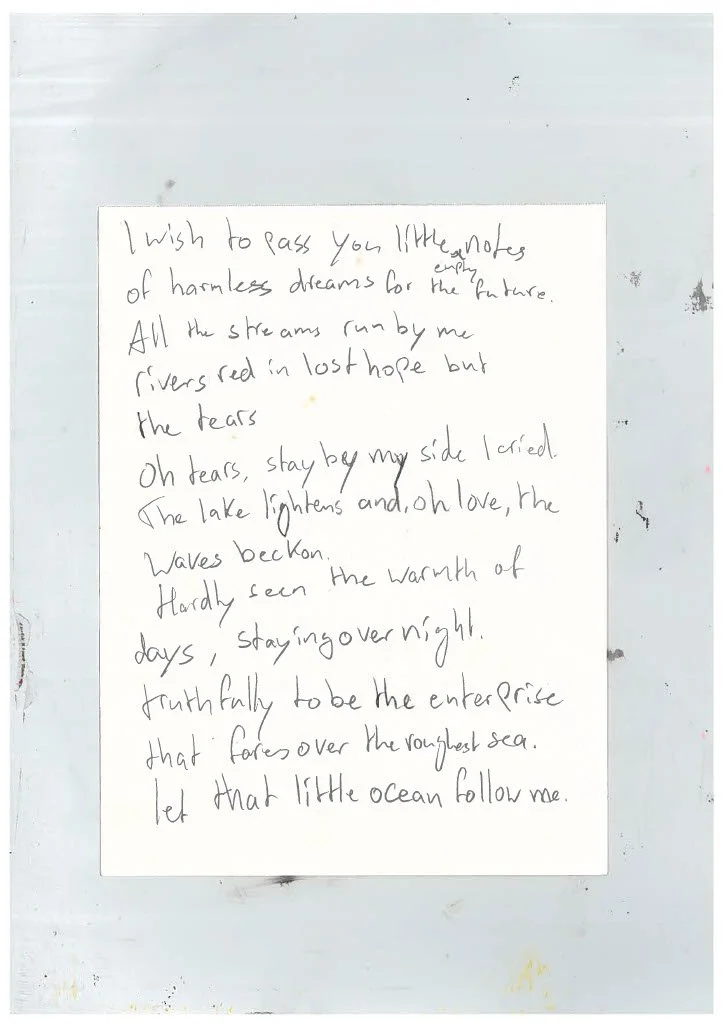 I wish to pass you little notes
of harmless dreams for the empty future.
All the streams run by me
rivers red in lost hope but
the tears
Oh tears, stay by my side I cried.
The lake lightens and, oh love, the
waves beckon.
Hardly seen the warmth of
days, staying over night.
truthfully to be the enterprise
that fares over the roughest sea.
let that little ocean follow me.